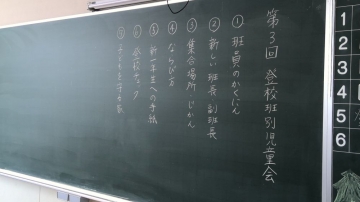 第3回 登校班別児童会
① 班員のかくにん
② 新しい 班長 副班長
③ 集合場所・じかん
④ ならび方
⑤ 新一年生への手紙
⑥ 登校チェック
⑦ 子ども見守り隊
1
2
3
4
5
6